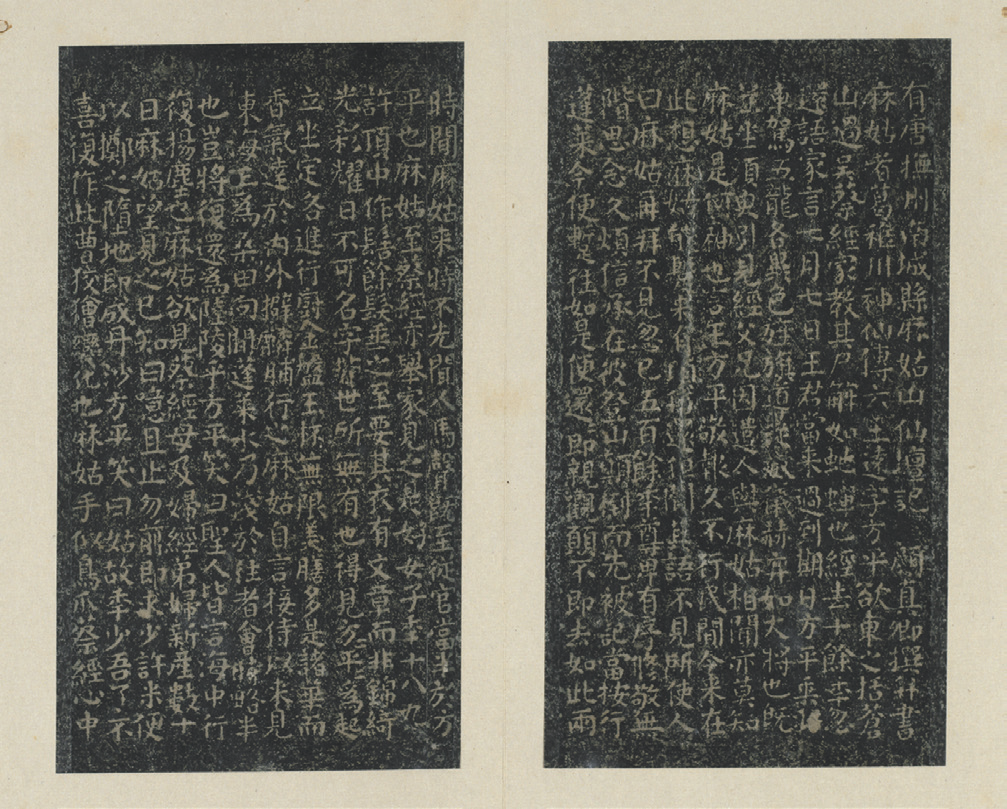 有唐撫州南城縣麻姑山仙壇記 顏真卿撰并書
麻姑者葛稚川神仙傳云王遠字方平欲東之括蒼
山過吳蔡經家教其尸解如蛇蟬也經去十餘年忽
還語家言七月七日王君當來過到期日方平乘羽
車駕五龍各異色旌旗導從威儀赫弈如大將也既
至坐須臾引見經父兄因遣人與麻姑相聞亦莫知
麻姑是何神也言王方平敬報久不行民間今來在
此想麻姑能暫來有頃信還但聞其語不見所使人
曰麻姑再拜不見忽已五百餘年尊卑有序修敬無
階思念久煩信承在彼登山顛倒而先被記當按行
蓬萊今便暫往如是便還即親觀願不即去如此兩
時間麻姑來時不先聞人馬聲既至從官當半於方
平也麻姑至蔡經亦舉家見之是好女子年十八九
許頂中作髻餘髮垂之至要其衣有文章而非錦綺
光彩耀日不可名字皆世所無有也得見方平為起
立坐定各進行廚金盤玉杯無限美膳多是諸華而
香氣達於內外擗麟脯行之麻姑自言接侍以來見
東海三為桑田向間蓬萊水乃淺於往者會時略半
也豈將復還為陸陵乎方平笑曰聖人皆言海中行
復揚塵也麻姑欲見蔡經母及婦經弟婦新產數十
日麻姑望見之已知曰噫且止勿前即求少許米便
以擲之墮地即成丹沙方平笑曰姑故年少吾了不
喜復作此曹狡獪變化也麻姑手似鳥爪蔡經心中